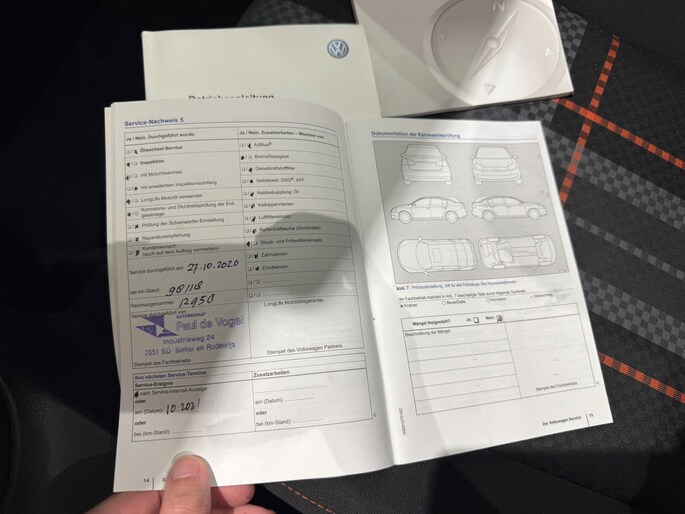 Betriebsanleitung
N
Service-Nachweis 5
Ja / Nein. Durchgeführt wurde:
Ölwechsel-Service
Inspektion
mit Motorölwechsel
mit erweitertem Inspektionsumfang
LongLife Motoröl verwendet
Korrosions- und Dichtheitsprüfung der Erd-
gasanlage
Prüfung der Scheinwerfer-Einstellung
Reparaturempfehlung
Kundenwunsch
(auch auf dem Auftrag vermerken!)
Service durchgeführt am: 27.10.2020
bei km-Stand:
Rechnungsnummer: 12950
Service durchgeführt von:
AUTOBEDRIJF
Paul de Vogel
Industrieweg 24
2651 BD Berkel en Rodenrijs
Stempel des Fachbetriebs
Ja / Nein. Zusatzarbeiten – Wechsel von:
AdBlue®
Bremsflüssigkeit
Dieselkraftstofffilter
Getriebeöl: DSG®, ATF
Haldexkupplung: Öl
Keilrippenriemen
Luftfiltereinsatz
Staub- und Pollenfiltereinsatz
Zahnriemen
Zündkerzen
LongLife Mobilitätsgarantie:
Stempel des Volkswagen Partners
Ihre nächsten Service-Termine
Service-Ereignis
nach Service-Intervall-Anzeige
oder
am (Datum): 10.2021
oder
bei (km-Stand):
Zusatzarbeiten
am (Datum):
oder
bei (km-Stand):
14
Dokumentation der Karosserieprüfung
Abb. 7
Mängel festgestellt?
Ja
Nein
Beschreibung der Mängel:
Stempel des Fachbetriebs
Der Volkswagen Service
15